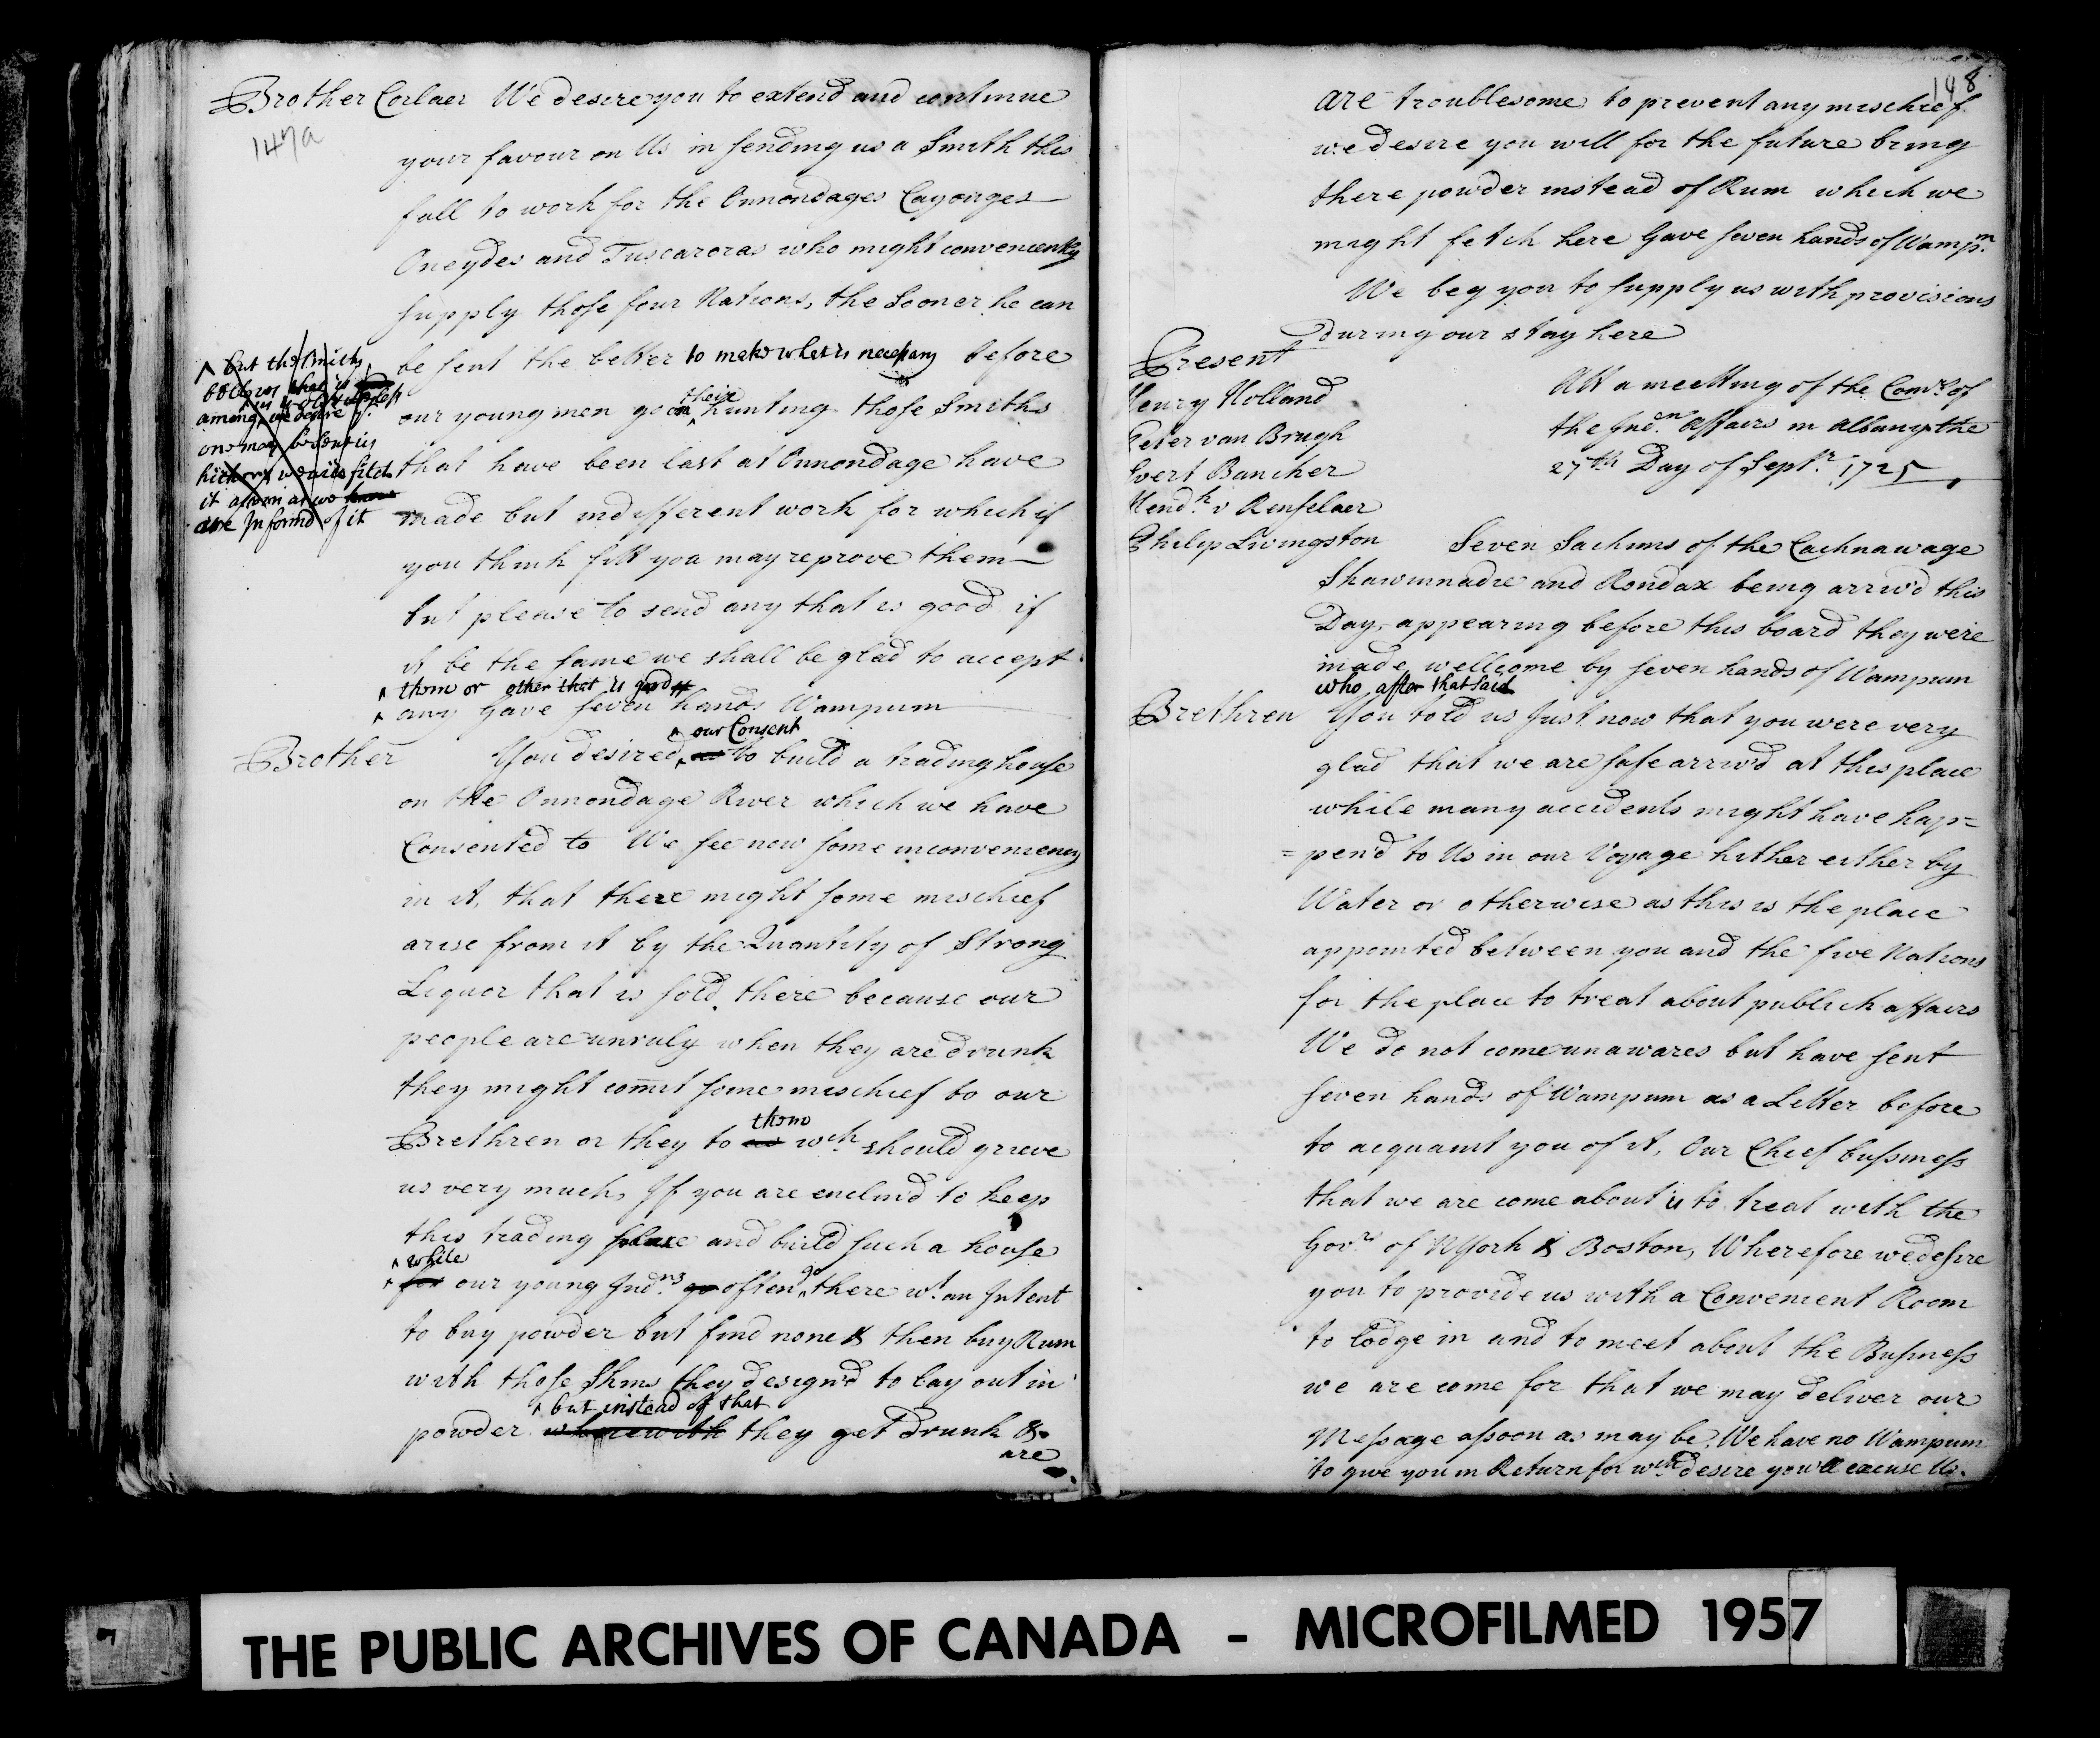 Brother Corlaer We desire you to extend and continue
147a
your favour on Us in sending us a Smith this
fall to work for the Onnondages Cayouges
Oneydes and Tuscaroras who might conveniently
supply those four Nations, the Sooner he can
be sent the better to make what is necessary before
our young men go on their hunting those Smiths
that have been last at Onnondage have
made but indifferent work for which if
you think fitt you may reprove them
but please to send any that is good if
it be the same we shall be glad to accept
them or other that is good
any Gave seven hands Wampum
^ but the Smiths
bellows that is
is useless
among we desire yt.
one may be sent us
hither we will fitch
it assoon as we know
are Informd of it
our Consent
Brother You desired us to build a trading house
on the Onnondage River which we have
Consented to We see now some inconveniency
in it, that there might some mischief
arise from it by the Quantity of Strong
Liquor that is sold there because our
people are unruly when they are drunk
they might comit some mischief to our
them
Brethren or they to us wch. should grieve
us very much, If you are enclind to keep
this trading place and build such a house
^ while
for our young Indns go often go there wt. an Intent
to buy powder but find none & then buy Rum
with those Skins they design'd to lay out in
^ but instead of that
powder wherewith they get drunk &
are
148
are troublesome to prevent any mischief
we desire you will for the future bring
there powder instead of Rum which we
might fetch here Gave seven hands of Wampm.
We beg you to supply us with provisions
during our stay here
Present
Henry Holland
Peter van Brugh
Evert Bancker
Hendk. v Renselaer
Philip Livingston
Att a meeting of the Comrs. of
the Indn. Affairs in Albany the
27th Day of Septr. 1725
Seven Sachims of the Cachnawage
Shawinnadie and Rondax being arriv'd this
Day, appearing before this board they were
made wellcome by seven hands of Wampum
who after that said
Brethren You told us Just now that you were very
glad that we are safe arriv'd at this place
while many accidents might have hap=
=pen'd to Us in our Voyage hither either by
Water or otherwise as this is the place
appointed between you and the five Nations
for the place to treat about publick affairs
We do not come unawares but have sent
seven hands of Wampum as a Letter before
to acquaint you of it, Our Chief bussiness
that we are come about is to treat with the
Govrs. of NYork & Boston, Wherefore we desire
you to provide us with a Convenient Room
to lodge in and to meet about the Business
we are come for that we may deliver our
Message assoon as may be, We have no Wampum
to give you in Return for wch. desire you'll excuse Us.
THE PUBLIC ARCHIVES OF CANADA - MICROFILMED 1957